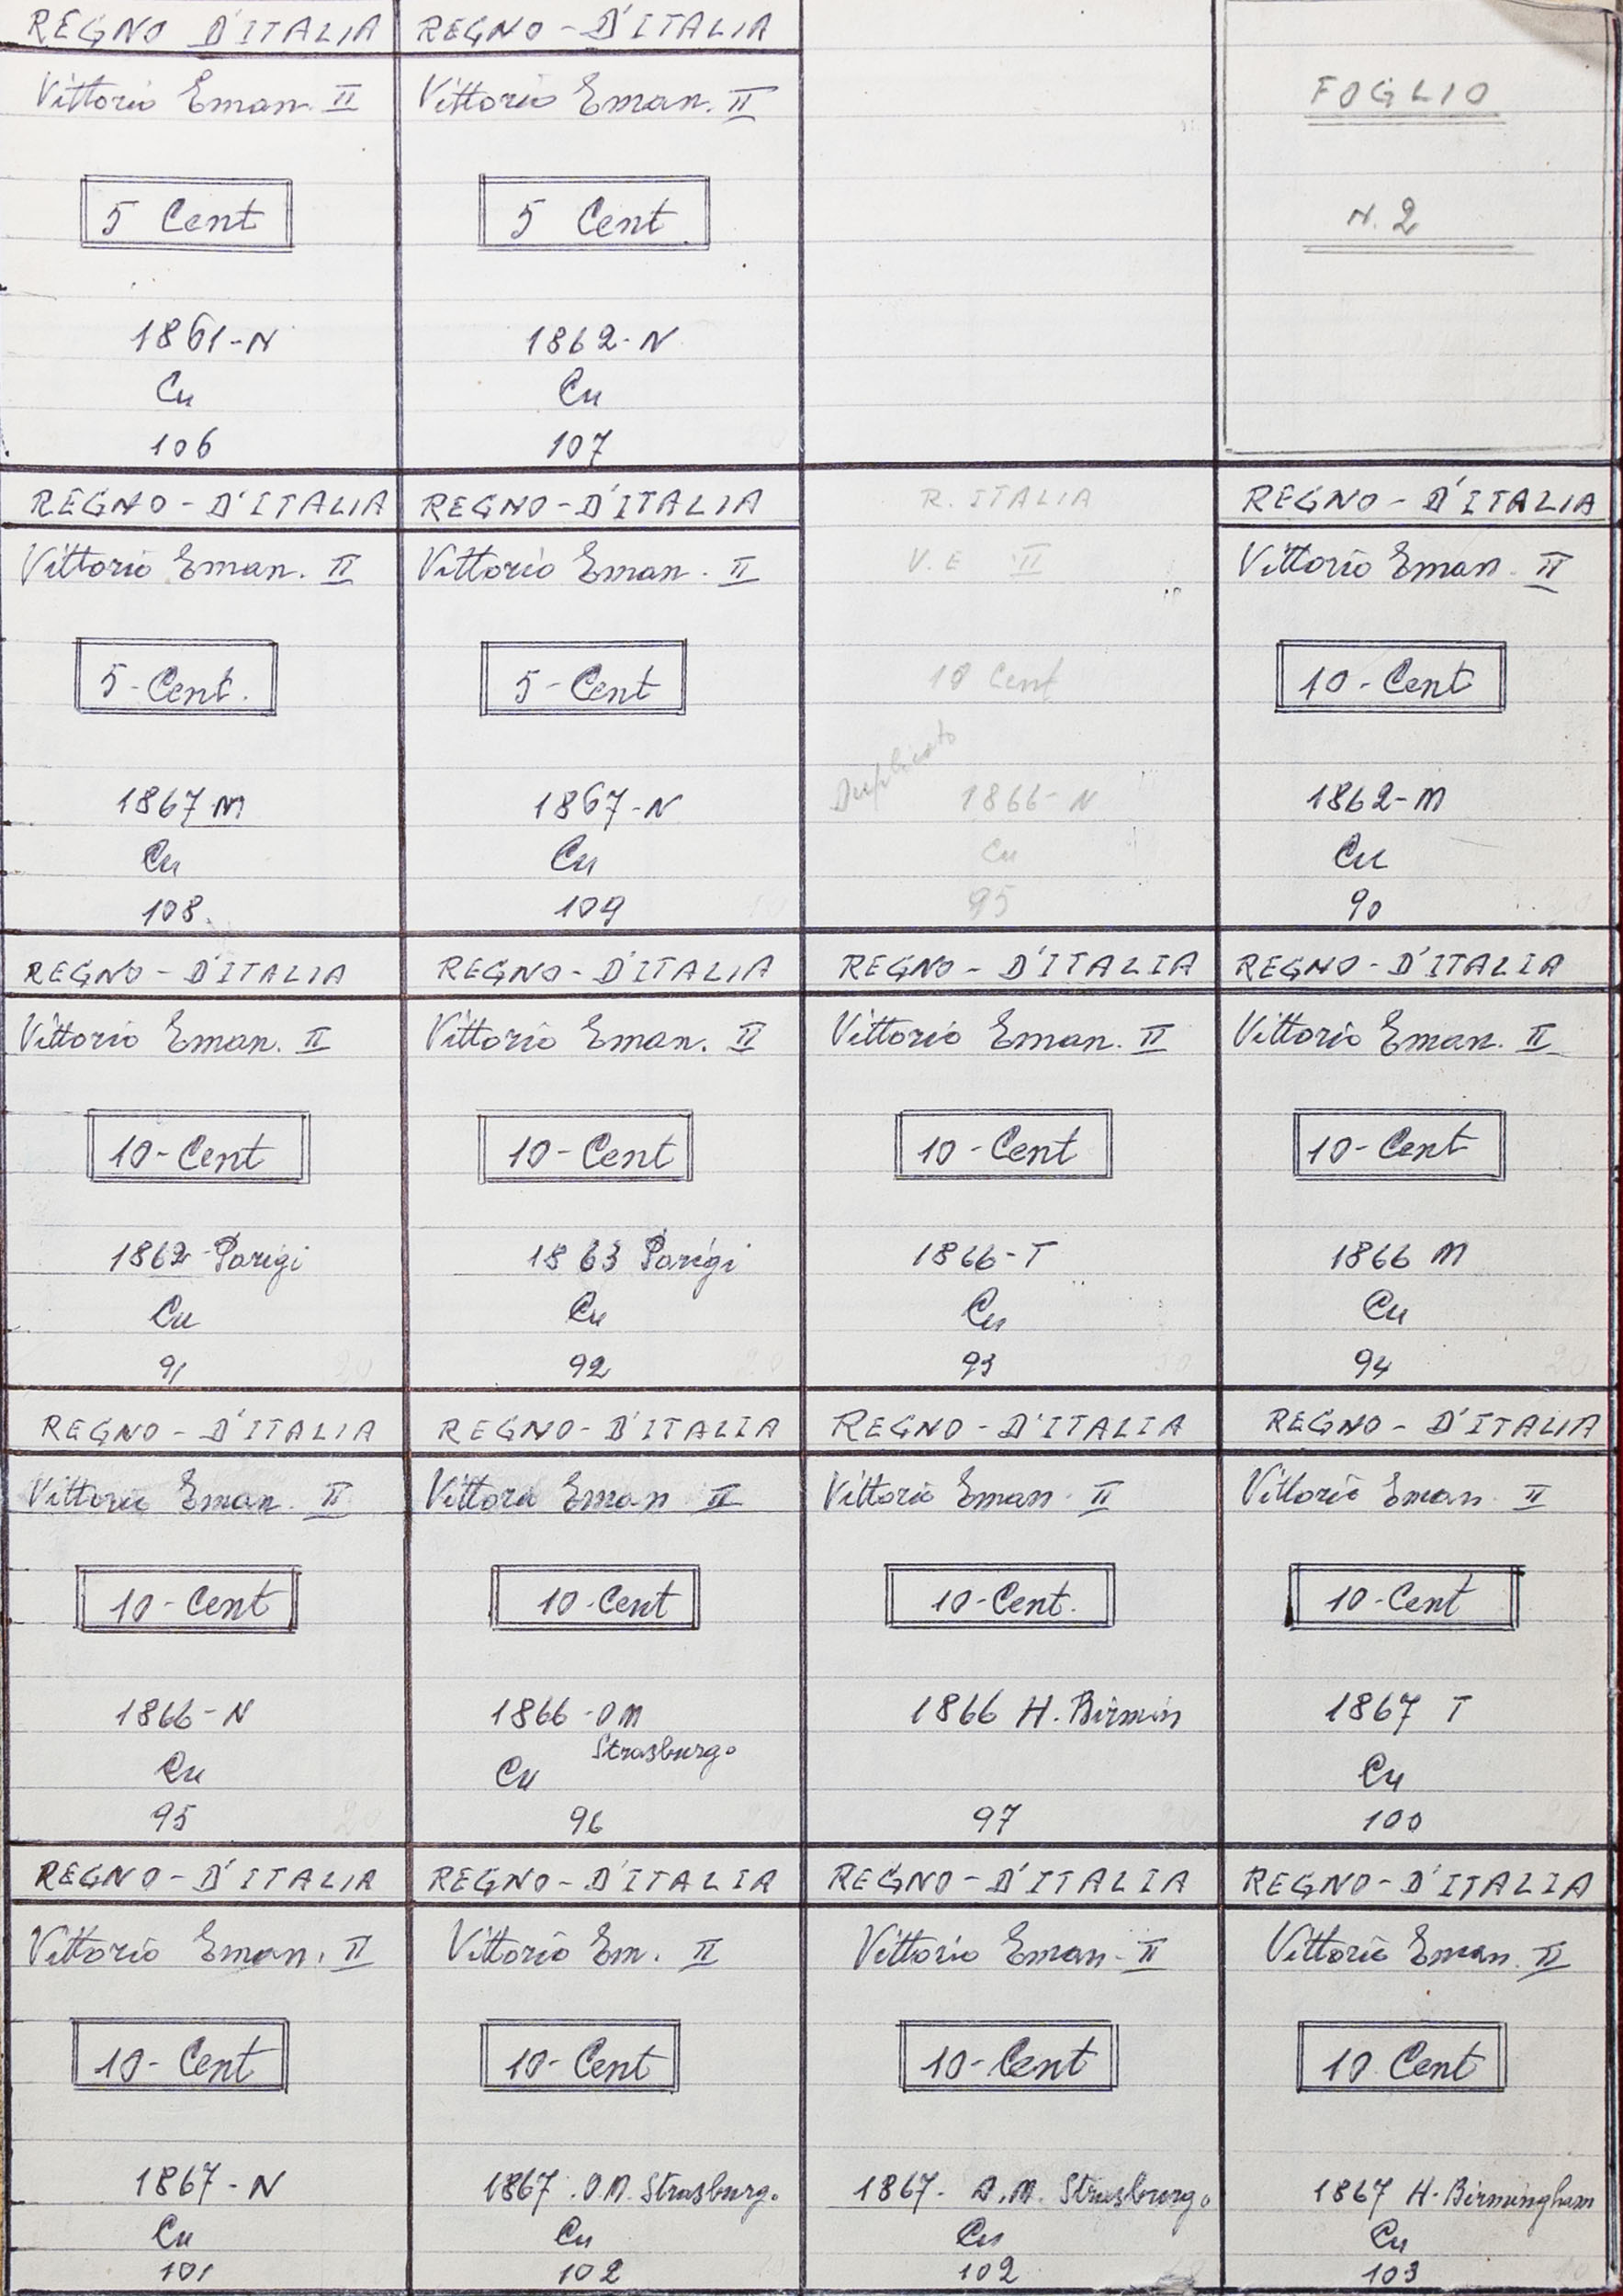 REGNO D'ITALIA
Vittorio Eman. II
5 Cent
1861-N
Cu
106
REGNO-D'ITALIA
Vittorio Eman. II
5 Cent
1862-N
Cu
107
FOGLIO
N. 2
REGNO-D'ITALIA
Vittorio Eman. II
5-Cent.
1867 M
Cu
108.
REGNO-D'ITALIA
Vittorio Eman. II
5-Cent
1867-N
Cu
109
R. ITALIA
V. E II
10 Cent
Duplicato
1866-N
Cu
95
REGNO-D'ITALIA
Vittorio Eman. II
10-Cent
1862-M
Cu
90
REGNO-D'ITALIA
Vittorio Eman. II
10-Cent
1862-Parigi
Cu
91
REGNO-D'ITALIA
Vittorio Eman. II
10-Cent
1863 Parigi
Cu
92
REGNO-D'ITALIA
Vittorio Eman. II
10-Cent
1866-T
Cu
93
REGNO-D'ITALIA
Vittorio Eman. II
10-Cent
1866 M
Cu
94
REGNO-D'ITALIA
Vittorio Eman. II
10-Cent
1866-N
Cu
95
REGNO-D'ITALIA
Vittorio Eman II
10-Cent
1866-OM
Strasburgo
Cu
96
REGNO-D'ITALIA
Vittorio Eman. II
10-Cent.
1866 H. Birmin
97
REGNO-D'ITALIA
Vittorio Eman. II
10-Cent
1867 T
Cu
100
REGNO-D'ITALIA
Vittorio Eman. II
10-Cent
1867-N
Cu
101
REGNO-D'ITALIA
Vittorio Em. II
10-Cent
1867. O.M. Strasburgo
Cu
102
REGNO-D'ITALIA
Vittorio Eman-II
10-Cent
1867- O.M. Strasburgo
Cu
102
REGNO-D'ITALIA
Vittorio Eman. II
10 Cent
1867 H. Birmingham
Cu
103